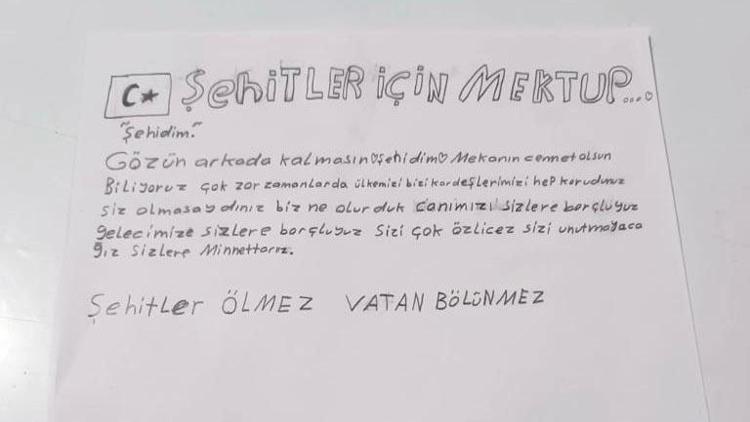 ŞehiTLER içiN MEKTUP...
"Şehidim."
Gözün arkada kalmasın♡şehidim♡ Mekanın cennet olsun
Biliyoruz çok zor zamanlarda ülkemizi bizi kardeşlerimizi hep korudunuz
siz olmasaydınız biz ne olurduk canımızı sizlere borçluyuz
gelecimize sizlere borçluyuz sizi çok özlicez sizi unutmayaca
ğız sizlere Minnettarız.
Şehitler ÖLMEZ VATAN BÖLÜNMEZ